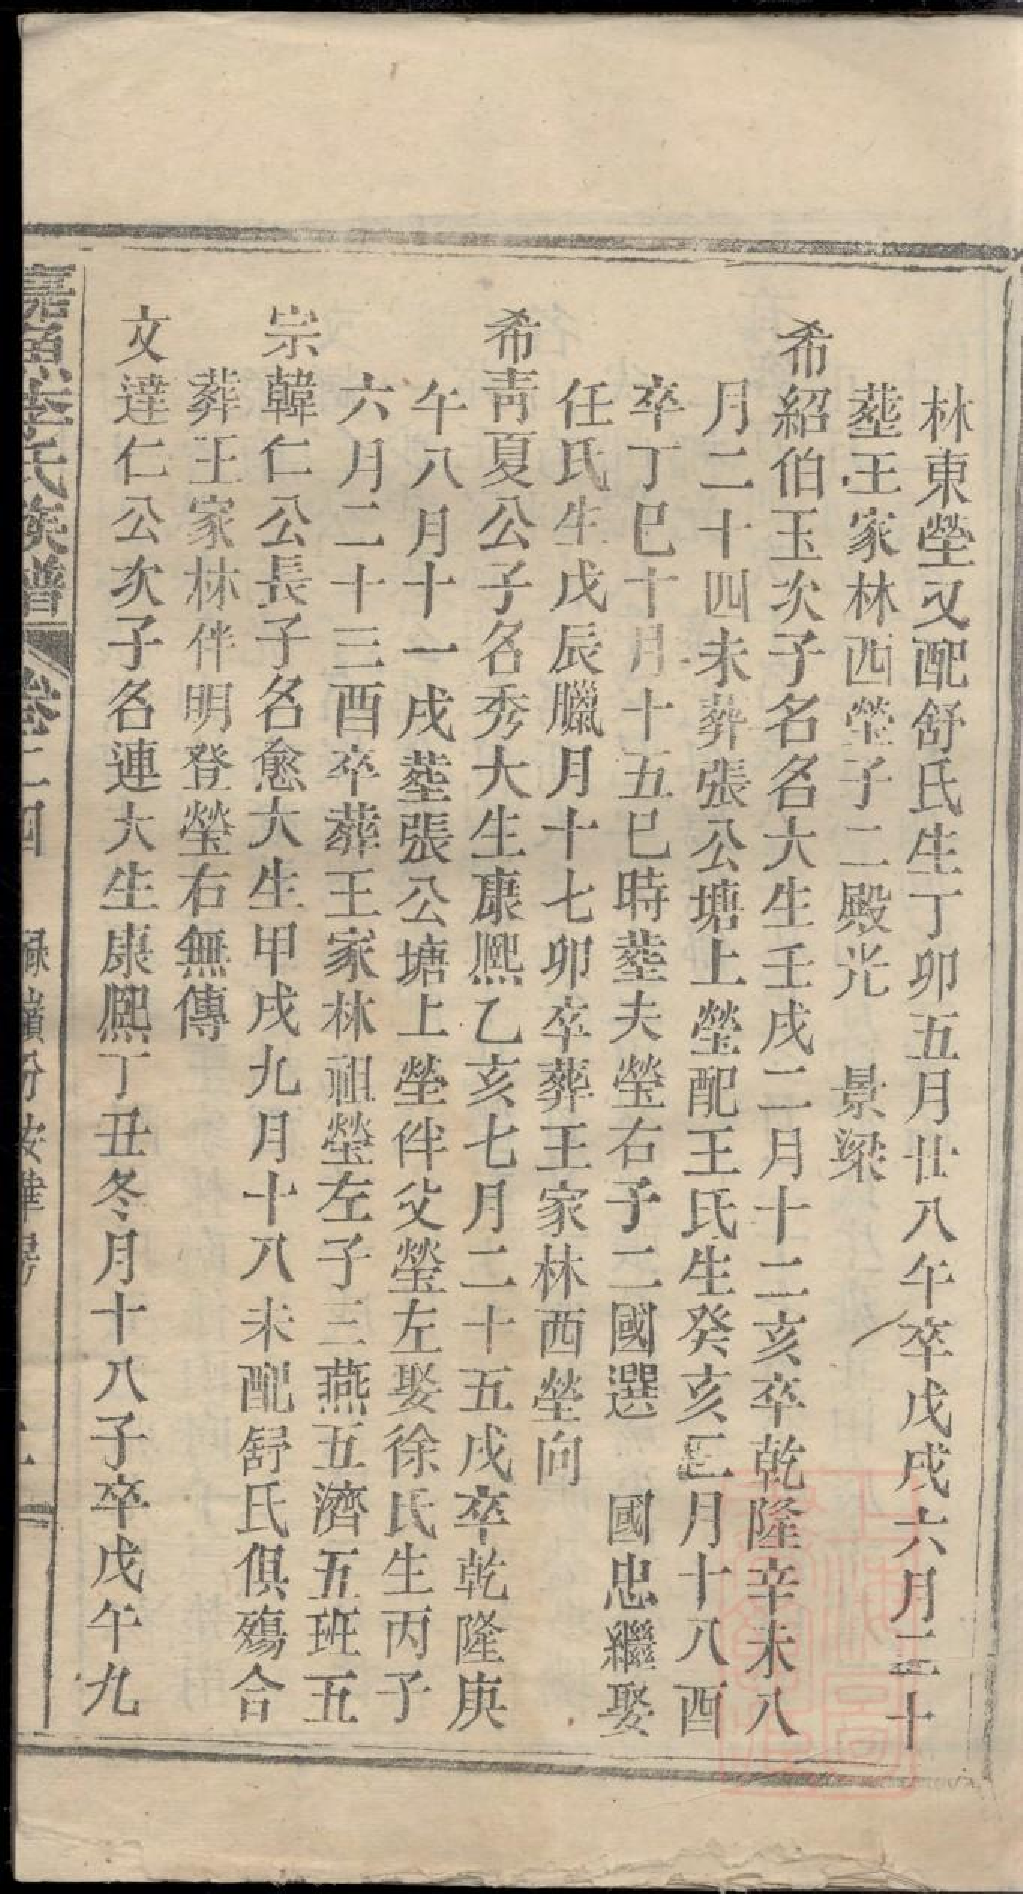 林東塋又配舒氏生丁卯五月廿八午卒戊戌六月二十
塟王家林西塋子二殿光　景梁
希紹伯玉次子名名大生壬戌二月十二亥卒乾隆辛未八
月二十四未葬張公塘上瑩配王氏生癸亥三月十八酉
卒丁巳十月十五巳時塟夫瑩右子二國選　國忠繼娶
任氏生戊辰臘月十七卯卒葬王家林西塋向
希青夏公子名秀大生康熙乙亥七月二十五戌卒乾隆庚
午八月十一戌塟張公塘上塋伴父瑩左娶徐氏生丙子
六月二十三酉卒葬王家林祖瑩左子三燕五濟五班五
宗韓仁公長子名愈大生甲戌九月十八未配舒氏俱殤合
葬王家林伴明登瑩右無傳
文達仁公次子名連大生康熙丁丑冬月十八子卒戊午九
嘉魚李氏族譜　卷二四